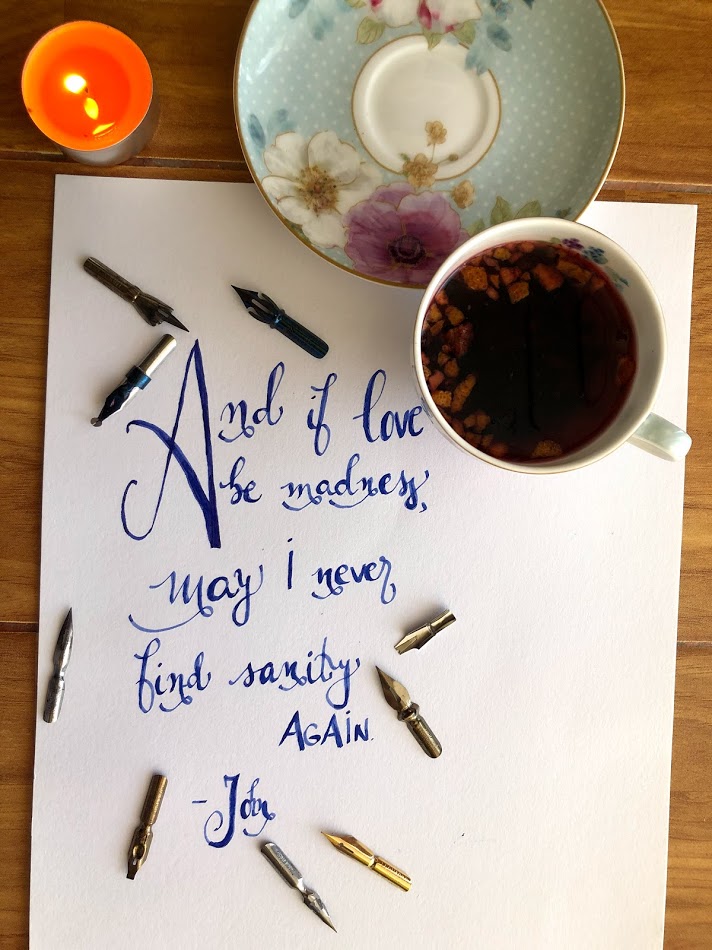 And if love
be madness,
may i never
find sanity
AGAIN.
- John